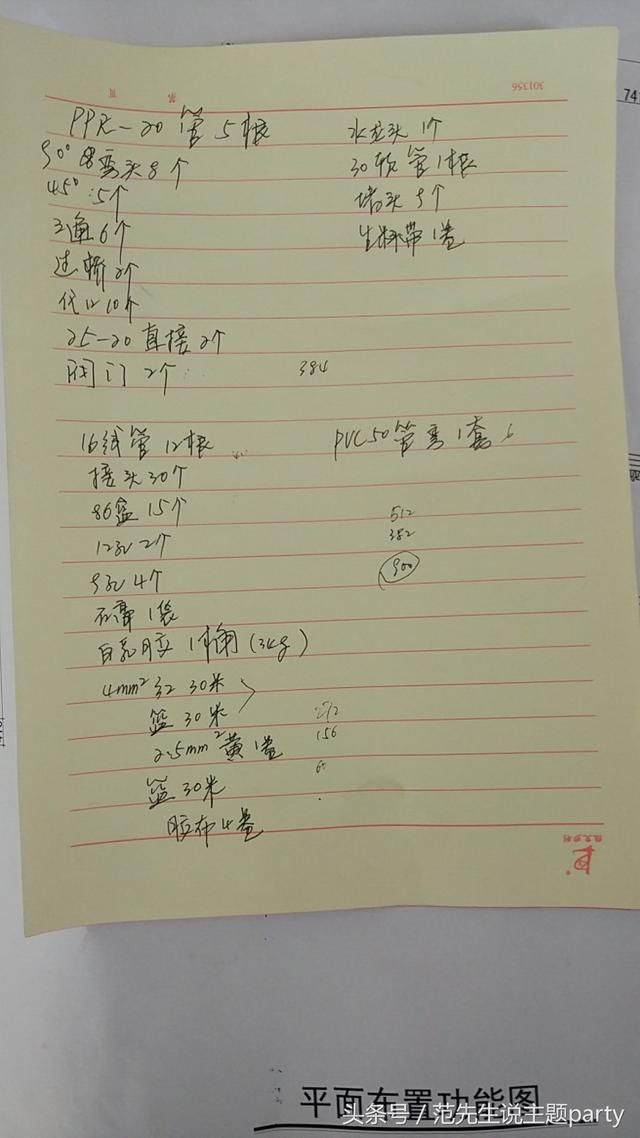 301356
第 页
741
PPR-20 管 5根
90° 弯头 8个
45° :5个
三通 6个
过桥 2个
代口 10个
25-20 直接 2个
阀门 2个
384
水龙头 1个
30软管 1根
堵头 5个
生料带 1卷
16线管 12根
接头 30个
86盒 15个
12孔 2个
9孔 4个
石膏 1袋
白乳胶 1桶 (3kg)
4mm² 红 30米
篮 30米
2.5mm² 黄 1卷
篮 30米
胶布 4卷
PVC50管弯 1套
512
382
900
272
156
平面布置功能图
头条号 / 范先生说主题party